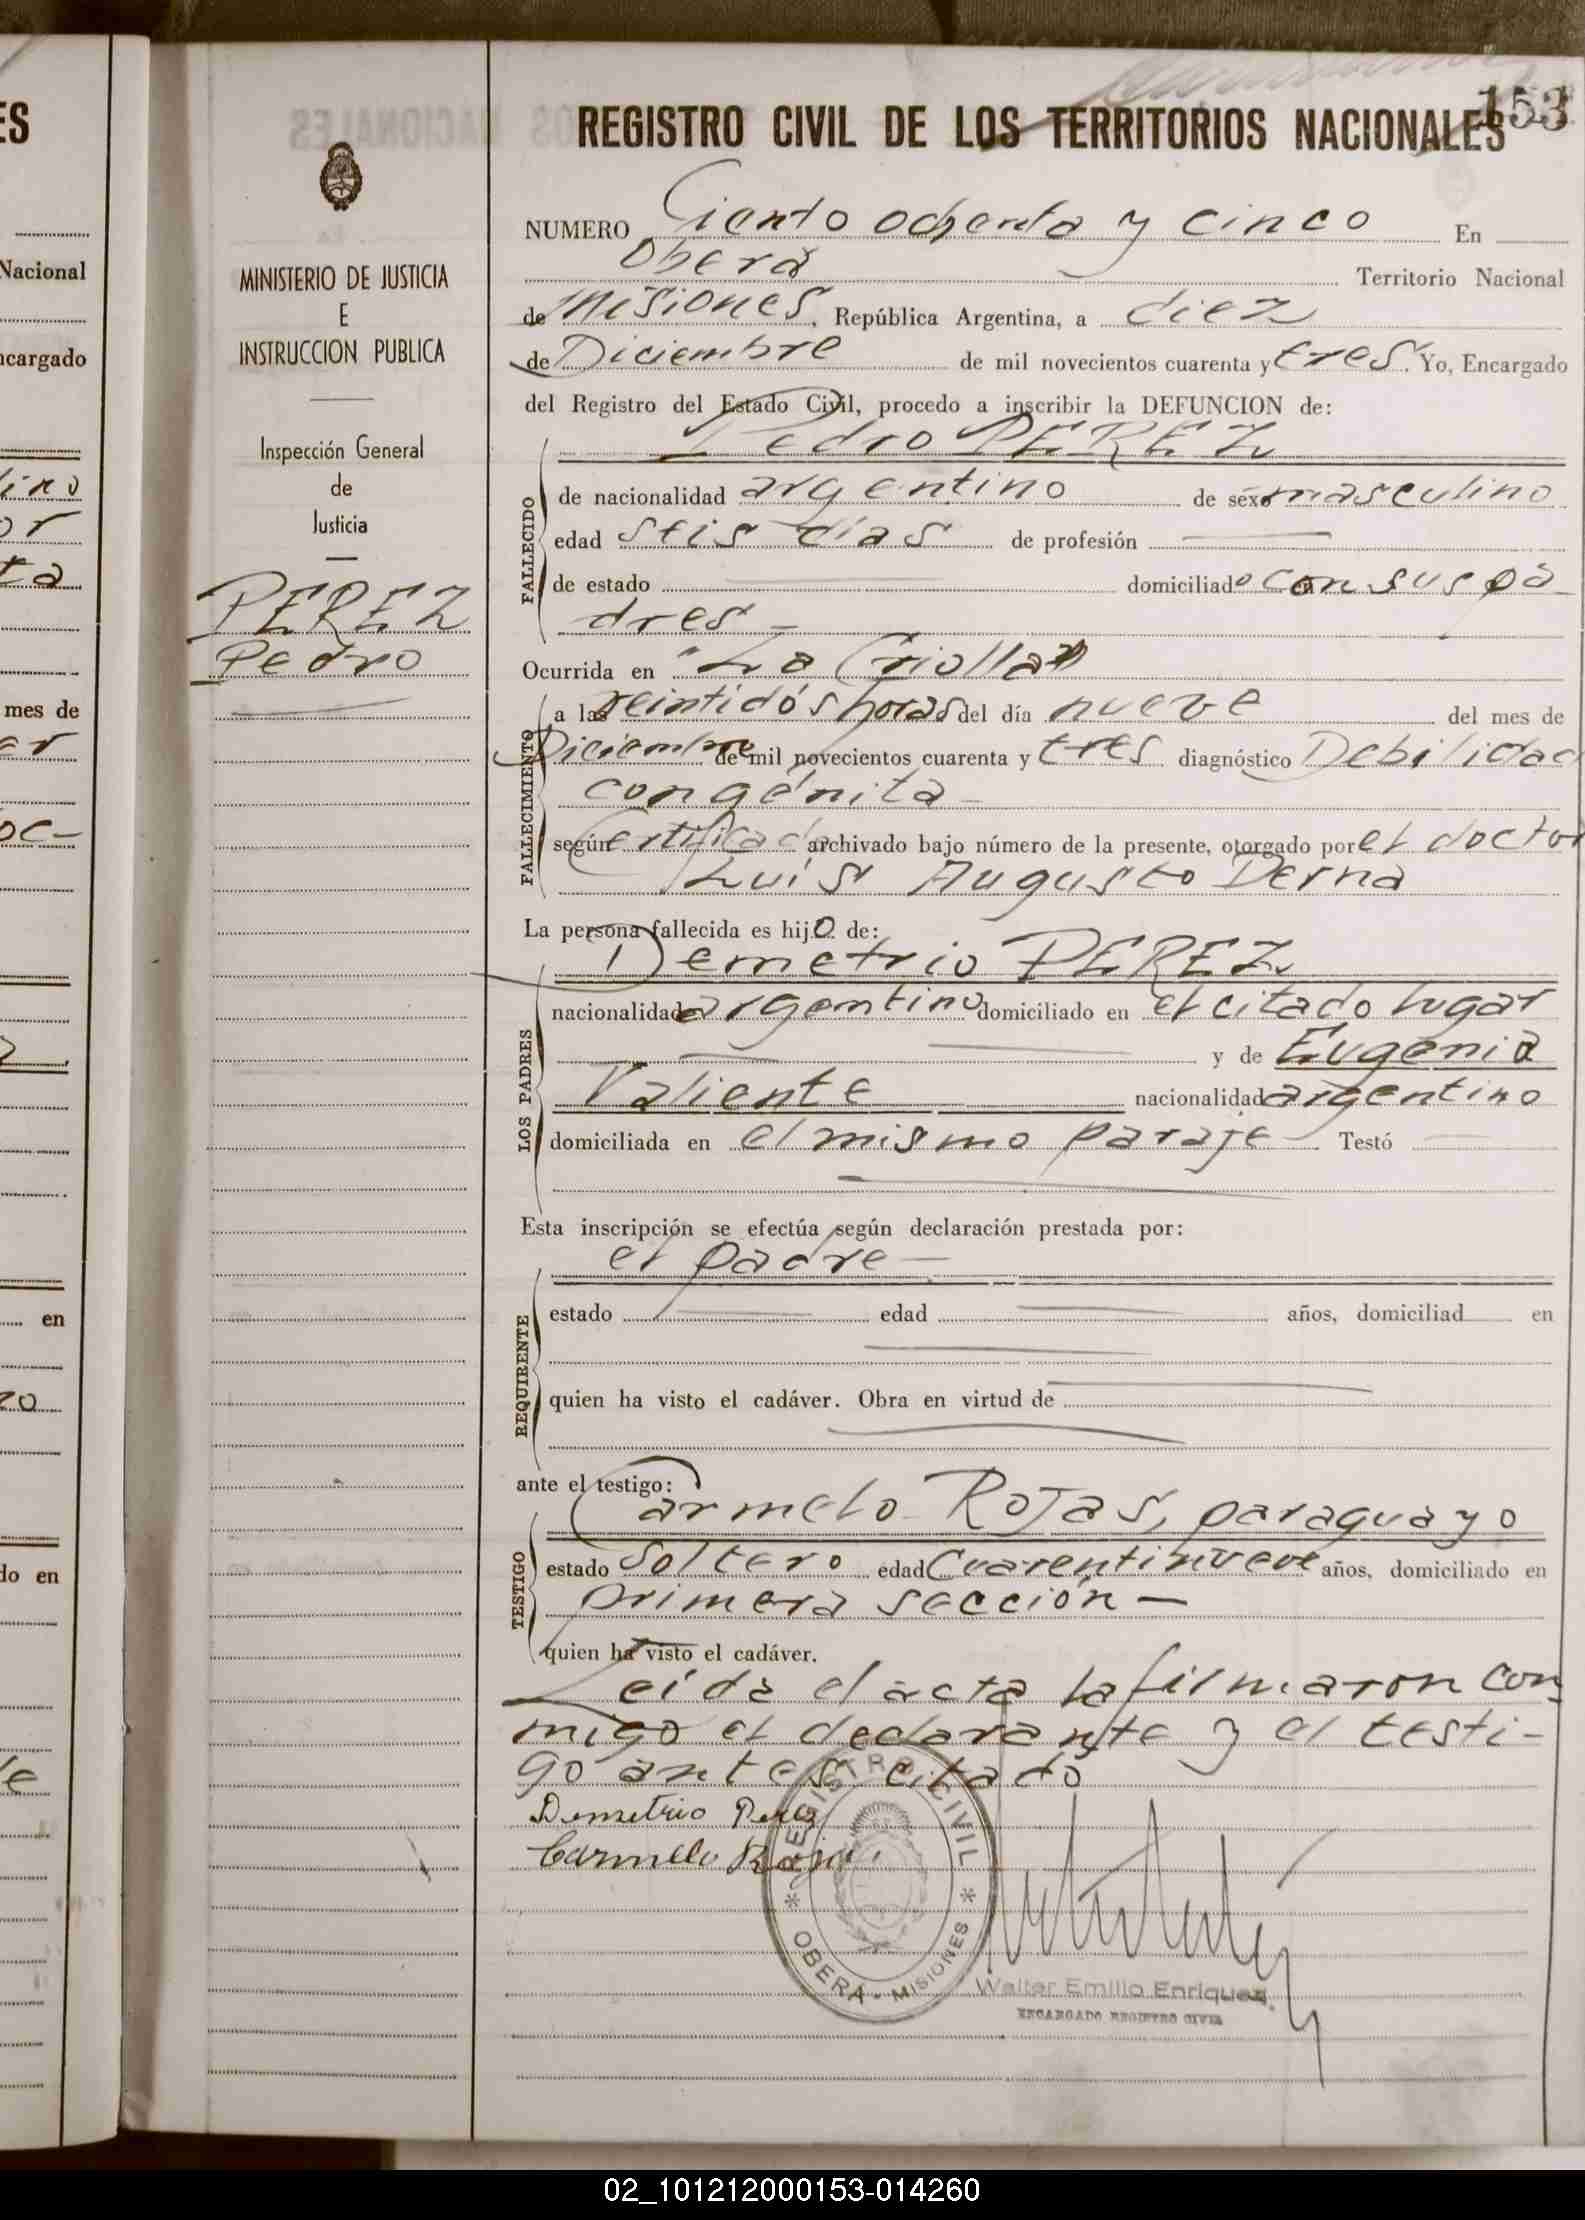 REGISTRO CIVIL DE LOS TERRITORIOS NACIONALES
153
MINISTERIO DE JUSTICIA
E
INSTRUCCION PUBLICA
Inspección General
de
Justicia
PEREZ
Pedro
NUMERO Ciento ochenta y cinco En
Oberá Territorio Nacional
de Misiones, República Argentina, a diez
de Diciembre de mil novecientos cuarenta y tres. Yo, Encargado
del Registro del Estado Civil, procedo a inscribir la DEFUNCION de:
Pedro PEREZ
FALLECIDO
de nacionalidad argentino de sexo masculino
edad seis días de profesión
de estado domiciliado con sus pa-
dres-
Ocurrida en "La Criolla"
FALLECIMIENTO
a las veintidós horas del día nueve del mes de
Diciembre de mil novecientos cuarenta y tres diagnóstico Debilidad
congénita-
según Certificado archivado bajo número de la presente, otorgado por el doctor
Luis Augusto Derna
La persona fallecida es hijo de:
Demetrio PEREZ
LOS PADRES
nacionalidad argentino domiciliado en el citado lugar
y de Eugenia
Valiente nacionalidad argentino
domiciliada en el mismo paraje- Testó
Esta inscripción se efectúa según declaración prestada por:
el padre-
REQUIRENTE
estado edad años, domiciliad en
quien ha visto el cadáver. Obra en virtud de
ante el testigo:
Carmelo Rojas, paraguayo
TESTIGO
estado Soltero edad Cuarentinueve años, domiciliado en
primera sección-
quien ha visto el cadáver.
Leída el acta la firmaron con
migo el declarante y el testi-
go antes citado
Demetrio Perez
Carmelo Rojas
REGISTRO CIVIL
* OBERÁ - MISIONES *
Walter Emilio Enriquez
ENCARGADO REGISTRO CIVIL
ES
Nacional
ncargado
lino
or
ta
mes de
er
oc-
en
zo
do en
le
02_101212000153-014260